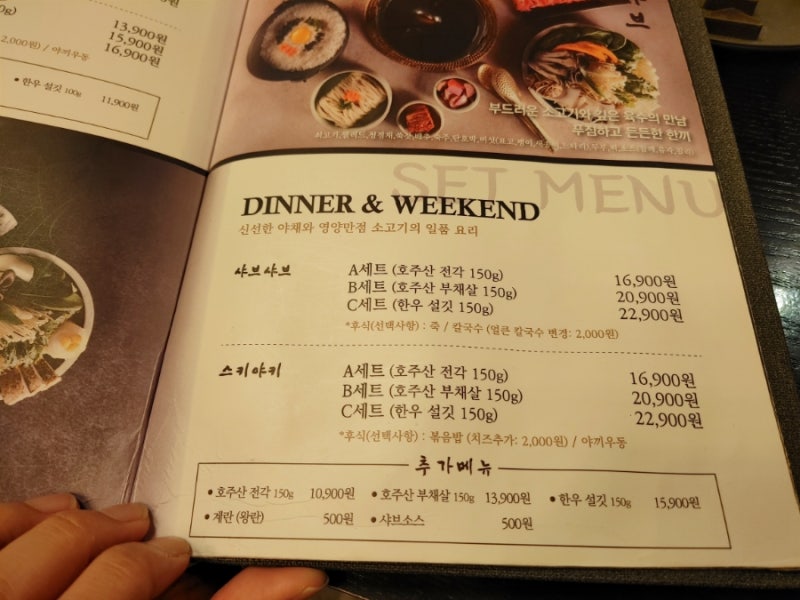 0g)
13,900원
15,900원
2,000원) / 야끼우동
16,900원
• 한우 설깃 100g 11,900원
샤브
부드러운 소고기와 깊은 육수의 만남
푸짐하고 든든한 한끼
SET MENU
DINNER & WEEKEND
신선한 야채와 영양만점 소고기의 일품 요리
샤브샤브
A세트 (호주산 전각 150g) 16,900원
B세트 (호주산 부채살 150g) 20,900원
C세트 (한우 설깃 150g) 22,900원
*후식(선택사항) : 죽 / 칼국수 (얼큰 칼국수 변경: 2,000원)
스키야키
A세트 (호주산 전각 150g) 16,900원
B세트 (호주산 부채살 150g) 20,900원
C세트 (한우 설깃 150g) 22,900원
*후식(선택사항) : 볶음밥 (치즈추가: 2,000원) / 야끼우동
추가메뉴
• 호주산 전각 150g 10,900원 • 호주산 부채살 150g 13,900원 • 한우 설깃 150g 15,900원
• 계란 (왕란) 500원 • 샤브소스 500원